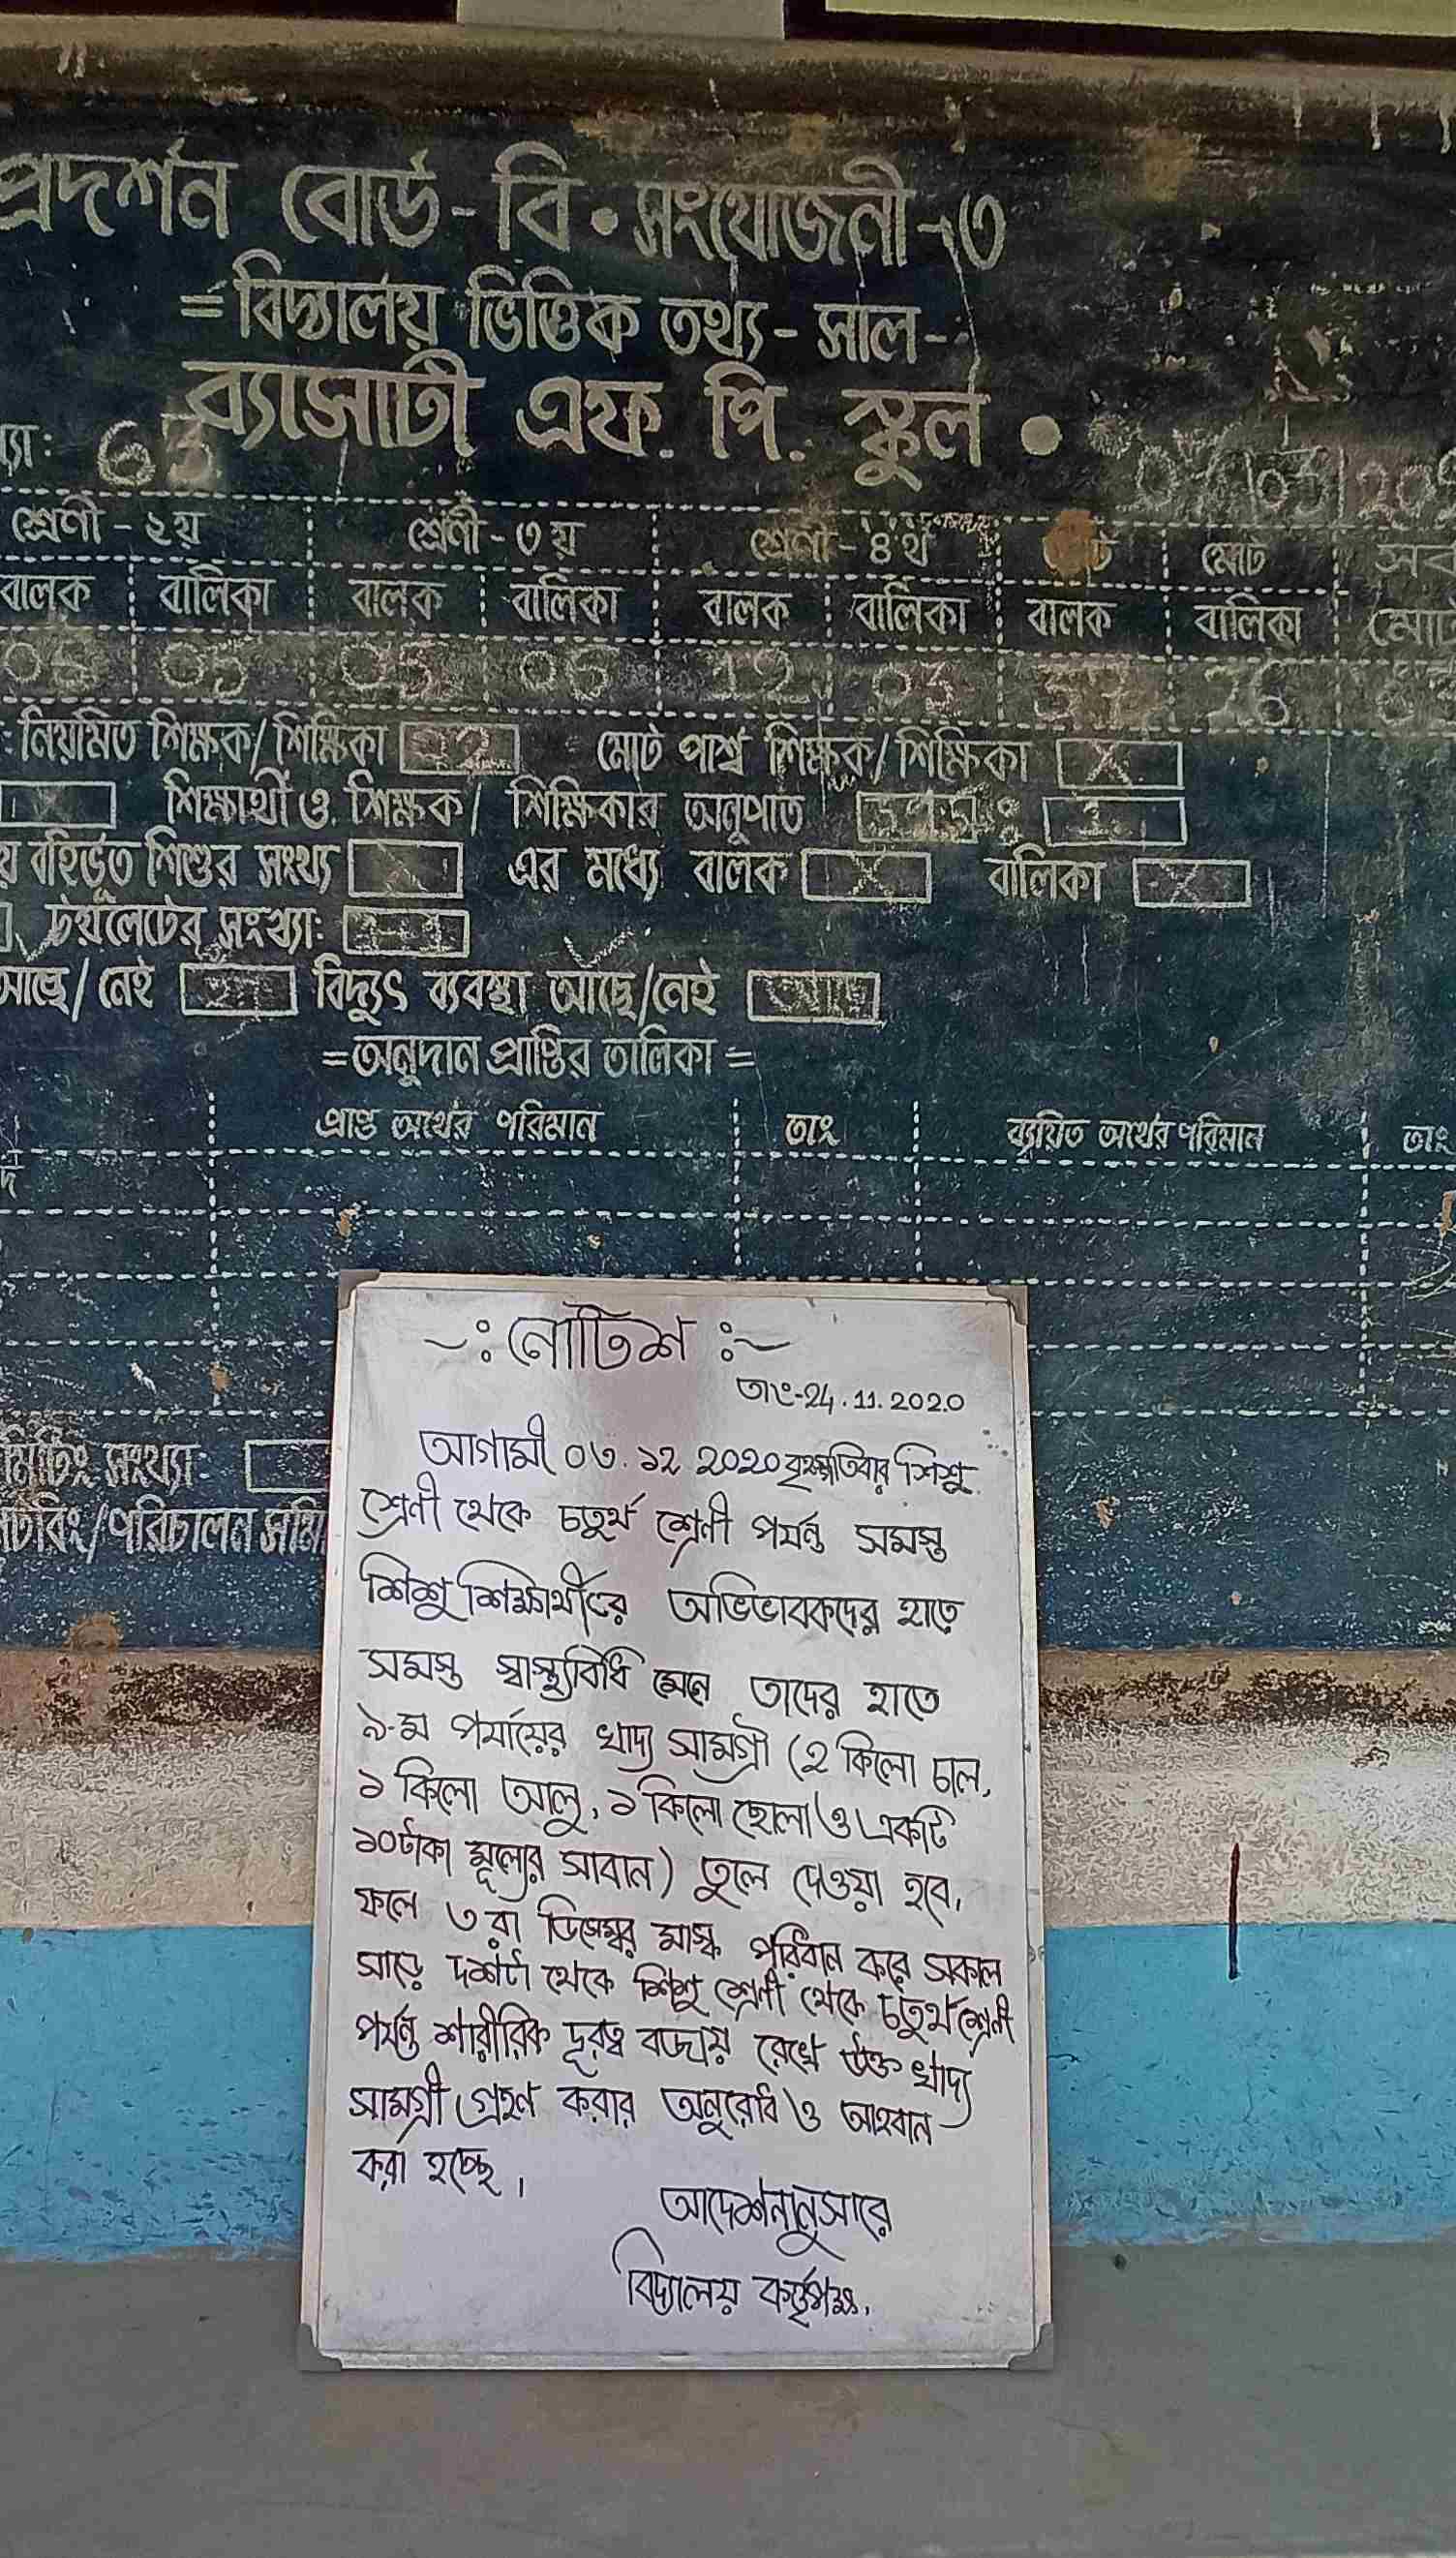 প্রদর্শন বোর্ড - বি • সংযোজনী - ৩
= বিদ্যালয় ভিত্তিক তথ্য - সাল -
ব্যাসাটী এফ. পি. স্কুল •
খ্যা: 63
শ্রেণী - ২য় শ্রেণী - ৩য় শ্রেণী - ৪র্থ মোট
বালক বালিকা বালক বালিকা বালক বালিকা বালক বালিকা
05 05 06 12 03 37 26
নিয়মিত শিক্ষক/শিক্ষিকা মোট পার্শ্ব শিক্ষক/শিক্ষিকা X
X শিক্ষার্থী ও শিক্ষক/ শিক্ষিকার অনুপাত
বহির্ভূত শিশুর সংখ্যা X এর মধ্যে বালক X বালিকা X
টয়লেটের সংখ্যা:
আছে/নেই বিদ্যুৎ ব্যবস্থা আছে/নেই আছে
= অনুদান প্রাপ্তির তালিকা =
প্রাপ্ত অর্থের পরিমান তাং ব্যয়িত অর্থের পরিমান তাং
মিটিং সংখ্যা
~: নোটিশ :~
তাং-24.11.2020
আগামী ০৩.১২ 2020 বৃহস্পতিবার শিশু
শ্রেণী থেকে চতুর্থ শ্রেণী পর্যন্ত সমস্ত
শিশু শিক্ষার্থীদের অভিভাবকদের হাতে
সমস্ত স্বাস্থ্যবিধি মেনে তাদের হাতে
৯-ম পর্যায়ের খাদ্য সামগ্রী (২ কিলো চাল,
১ কিলো আলু, ১ কিলো ছোলা ও একটি
১০টাকা মূল্যের সাবান) তুলে দেওয়া হবে,
ফলে ৩রা ডিসেম্বর মাস্ক পরিধান করে সকাল
সাড়ে দশটা থেকে শিশু শ্রেণী থেকে চতুর্থ শ্রেণী
পর্যন্ত শারীরিক দূরত্ব বজায় রেখে উক্ত খাদ্য
সামগ্রী গ্রহণ করার অনুরোধ ও আহবান
করা হচ্ছে।
আদেশনানুসারে
বিদ্যালয় কর্তৃপক্ষ,